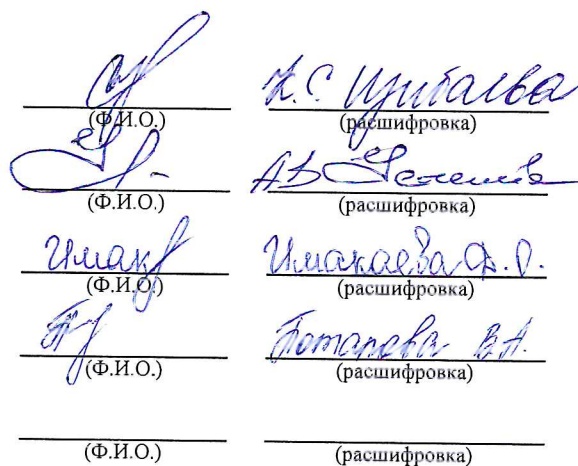 К.С.
(Ф.И.О.) (расшифровка)
А.В.
(Ф.И.О.) (расшифровка)
Имак Имакаева Ф.О.
(Ф.И.О.) (расшифровка)
Потапова В.А.
(Ф.И.О.) (расшифровка)
(Ф.И.О.) (расшифровка)